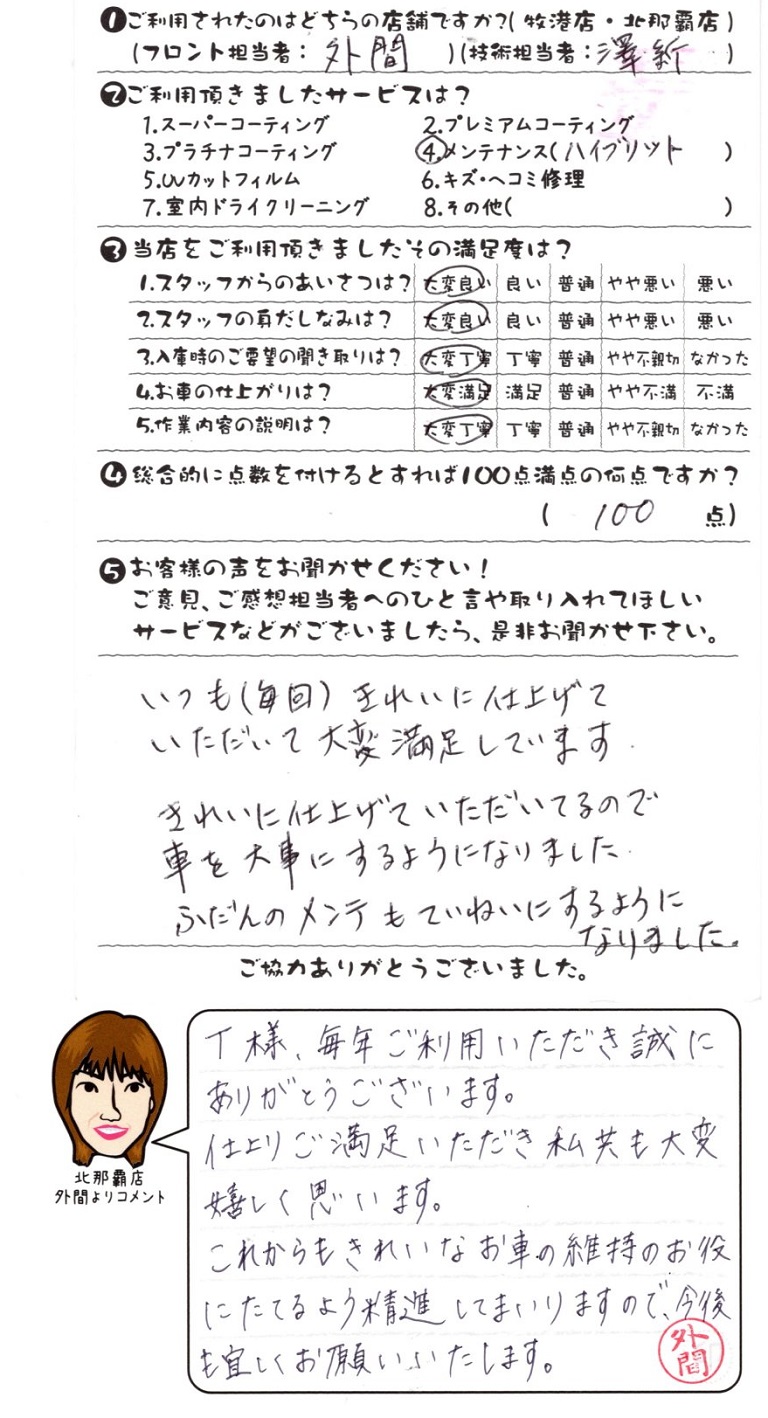 ❶ご利用されたのはどちらの店舗ですか?(牧港店・北那覇店)
(フロント担当者: 外間 )(技術担当者: 澤新 )
❷ご利用頂きましたサービスは?
1.スーパーコーティング 2.プレミアムコーティング
3.プラチナコーティング 4.メンテナンス(ハイブリット )
5.UVカットフィルム 6.キズ・ヘコミ修理
7.室内ドライクリーニング 8.その他( )
❸当店をご利用頂きましたその満足度は?
1.スタッフからのあいさつは? 大変良い 良い 普通 やや悪い 悪い
2.スタッフの身だしなみは? 大変良い 良い 普通 やや悪い 悪い
3.入庫時のご要望の聞き取りは? 大変丁寧 丁寧 普通 やや不親切 なかった
4.お車の仕上がりは? 大変満足 満足 普通 やや不満 不満
5.作業内容の説明は? 大変丁寧 丁寧 普通 やや不親切 なかった
❹総合的に点数を付けるとすれば100点満点の何点ですか?
( 100 点)
❺お客様の声をお聞かせください!
ご意見、ご感想担当者へのひと言や取り入れてほしい
サービスなどがございましたら、是非お聞かせ下さい。
いつも(毎回)きれいに仕上げて
いただいて大変満足しています.
きれいに仕上げていただいてるので
車を大事にするようになりました.
ふだんのメンテもていねいにするように
なりました。
ご協力ありがとうございました。
T様、毎年ご利用いただき誠に
ありがとうございます。
仕上りご満足いただき私共も大変
嬉しく思います。
これからもきれいなお車の維持のお役
にたてるよう精進してまいりますので、今後
も宜しくお願いいたします。
外間
北那覇店
外間よりコメント